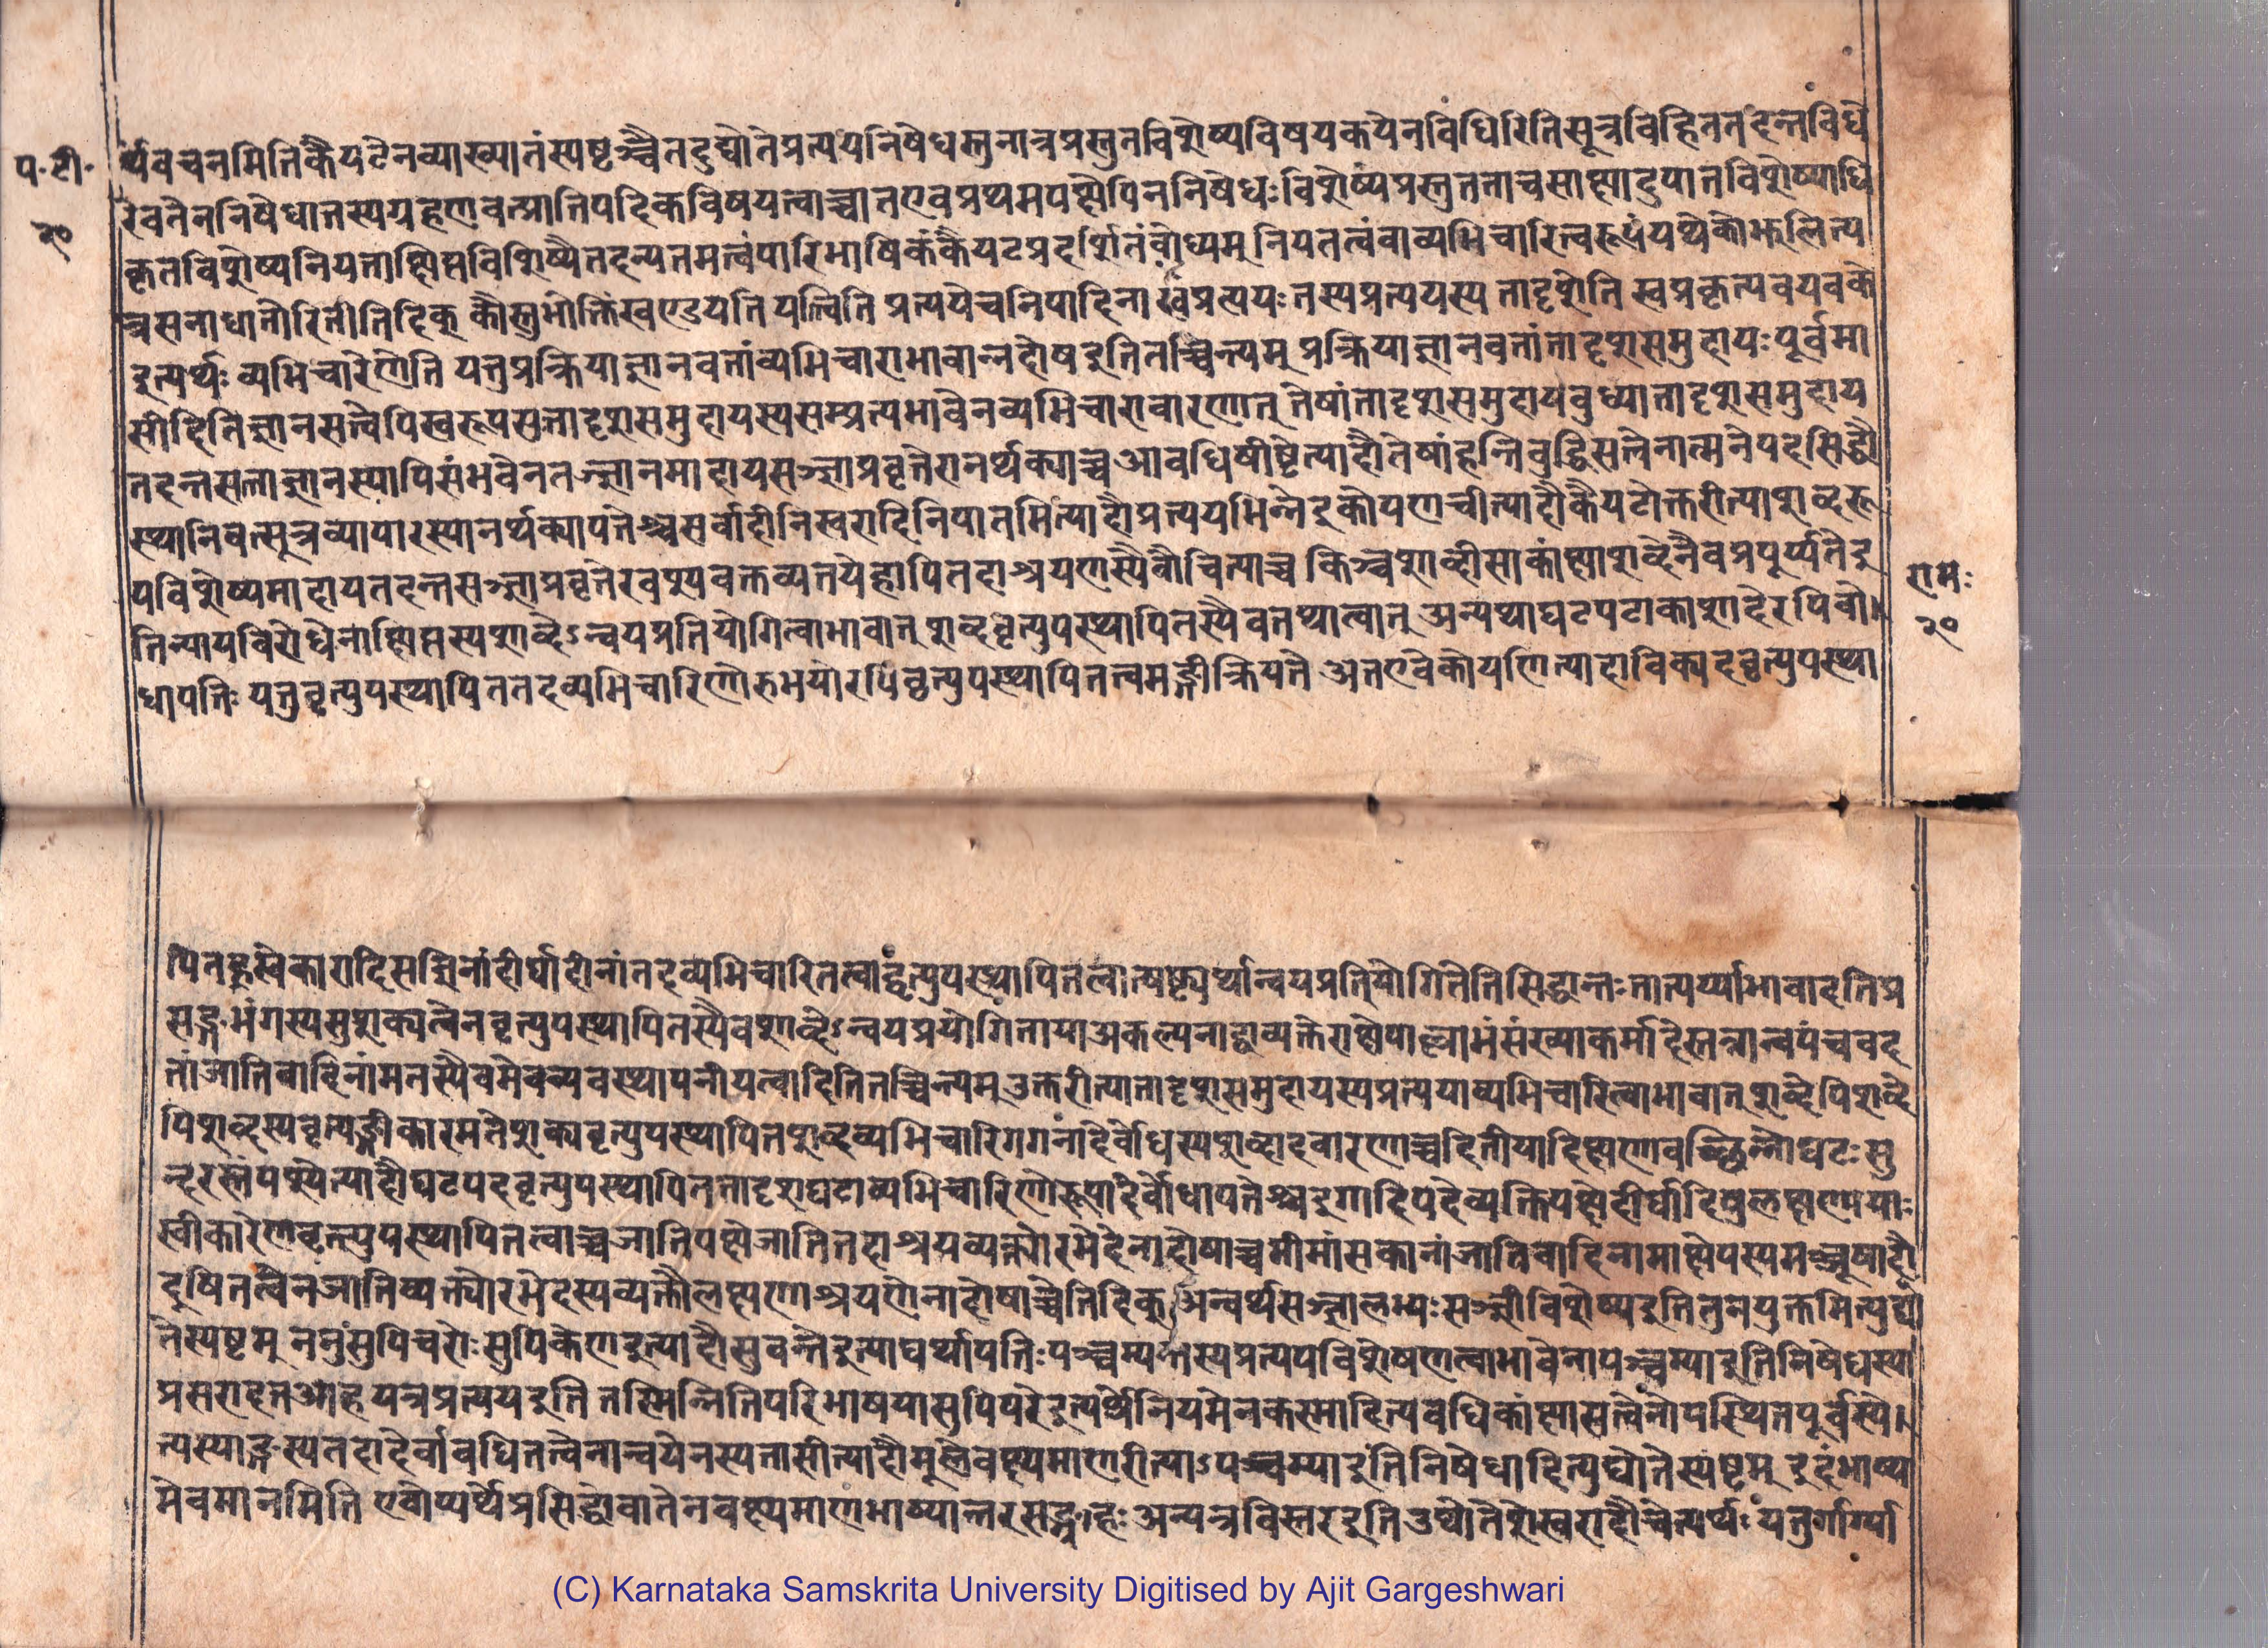 प॰ टी॰
२०
र्थवचनमितिकैयटेनव्याख्यातंस्पष्टञ्चैतदुद्द्योतेप्रत्ययनिषेधस्तुनात्रप्रस्तुतविशेष्यविषयकयेनविधिरितिसूत्रविहिततदन्तविधे
रेवतेननिषेधात्तस्यग्रहणवत्प्रातिपदिकविषयत्वाच्चातएवप्रथमपक्षेपिननिषेधः विशेष्यंप्रस्तुततताचसाक्षादुपात्तविशेष्याधि
कृतविशेष्यनियताक्षिप्तविशिष्यैतदन्यतमत्वंपारिभाषिकंकैयटप्रदर्शितंबोध्यम् नियतत्वंवाव्यभिचारित्वरूपंयथेकोझलित्य
त्रसनाधातोरितीतिदिक् कौस्तुभोक्तिंखण्डयति यत्त्विति प्रत्ययेचनिपादिना र्खप्रत्ययः तस्यप्रत्ययस्य तादृशेति स्वप्रकृत्यवयवके
इत्यर्थः व्यभिचारेणेति यत्तुप्रक्रियाज्ञानवतांव्यभिचाराभावान्नदोषइतितच्चिन्त्यम् प्रक्रियाज्ञानवतांतादृशसमुदायः पूर्वमा
सीदितिज्ञानसत्वेपिस्वरूपसत्तादृशसमुदायस्यसम्प्रत्यभावेनव्यभिचारावारणात् तेषांतादृशसमुदायबुध्यातादृशसमुदाय
तदन्तसत्ताज्ञानस्यापिसंभवेनतज्ज्ञानमादायसञ्ज्ञाप्रवृत्तेरानर्थक्याच्च आवधिषीष्टेत्यादौतेषांहन्तिबुद्धिसत्वेनात्मनेपदसिद्धौ
स्थानिवत्सूत्रव्यापारस्यानर्थक्यापत्तेश्च सर्वादीनिस्वरादिनिपातमित्यादौप्रत्ययभिन्नेइकोयणचीत्यादौकैयटोक्तरीत्याशब्दरू
पविशेष्यमादायतदन्तसञ्ज्ञाप्रवृत्तेरवश्यवक्तव्यतयेहापितदाश्रयणस्यैवौचित्याच्च किञ्चशाब्दीसाकांक्षाशब्देनैवप्रपूर्य्यतेइ
तिन्यायविरोधेनाक्षिप्तस्यशाब्देऽन्वयप्रतियोगित्वाभावात् शब्दवृत्युपस्थापितस्यैवतथात्वात् अन्यथाघटपटाकाशादेरपिबो
धापत्तिः यत्तुवृत्युपस्थापिततदव्यभिचारिणोरुभयोरपिवृत्युपस्थापितत्वमङ्गीक्रियते अतएवेकोयणित्यादाविक्पदवृत्युपस्था
रामः
२०
पितह्रस्वेकारादिसञ्ज्ञिनांदीर्घादीनांतदव्यभिचारितत्वाद्वृत्युपस्थापितत्वात्षष्ट्यर्थान्वयप्रतियोगितेतिसिद्धान्तः तात्पर्य्याभावादतिप्र
सङ्गभंगस्यसुशक्यत्वेनवृत्युपस्थापितस्यैवशाब्देऽन्वयप्रयोगितायाअकल्पनाद्वाव्यक्तेराक्षेपाल्लाभंसंख्याकर्मादेस्तत्रान्वयंचवद
तांजातिवादिनांमतस्यैवमेवव्यवस्थापनीयत्वादितितच्चिन्त्यम् उक्तरीत्यातादृशसमुदायस्यप्रत्ययाव्यभिचारित्वाभावात् शाब्देपिशब्दे
पिशब्दस्यवृत्यङ्गीकारमतेशक्यवृत्युपस्थापितशब्दव्यभिचारिगगनादेर्बोधस्यशब्दादवारणाच्चद्दितीयादिक्षणावच्छिन्नोघटः सु
न्दरस्तंपश्येत्यादौघटपदवृत्युपस्थापिततादृशघटाव्यभिचारिणोरूपादेर्बोधापत्तेश्च इगादिपदेव्यक्तिपक्षेदीर्घादिषुलक्षणायाः
स्वीकारेणवृत्त्युपस्थापितत्वाच्च जातिपक्षेजातितदाश्रयव्यक्त्योरभेदेनादोषाच्चमीमांसकानांजातिवादिनामाक्षेपस्यमञ्जूषादौ
दूषितत्वेनजातिव्यक्त्योरभेदस्यव्यक्तौलक्षणाश्रयणेनादोषाच्चेतिदिक् अन्वर्थसञ्ज्ञालभ्यः सञ्ज्ञीविशेष्यइतितुनयुक्तमित्युद्द्यो
तेस्पष्टम् ननुंसुपिचरोः सुपिकेणइत्यादौसुबन्तेइत्याद्यर्थापत्तिः पञ्चम्यन्तस्यप्रत्ययविशेषणत्वाभावेनापञ्चम्याइतिनिषेधस्या
प्रसरादतआहयत्रप्रत्ययइति तस्मिन्नितिपरिभाषयासुपिपरेइत्यर्थेनियमेनकस्मादित्यवधिकांक्षासत्वेनोपस्थितपूर्वस्ये
त्यस्याङ्गस्यतदादेर्वावधितत्वेनान्वयेनस्यतासीत्यादौमूलेवक्ष्यमाणरीत्याऽपञ्चम्याइतिनिषेधादित्युद्योतेस्पष्टम् इदंभाष्या
मेवमानमिति एवोप्यर्थेप्रसिद्धोवातेनवक्ष्यमाणभाष्यान्तरसङ्ग्रहः अन्यत्रविस्तरइतिउद्योतेशेखरादौचेत्यर्थः यत्तुर्गार्ग्या
(C) Karnataka Samskrita University Digitised by Ajit Gargeshwari